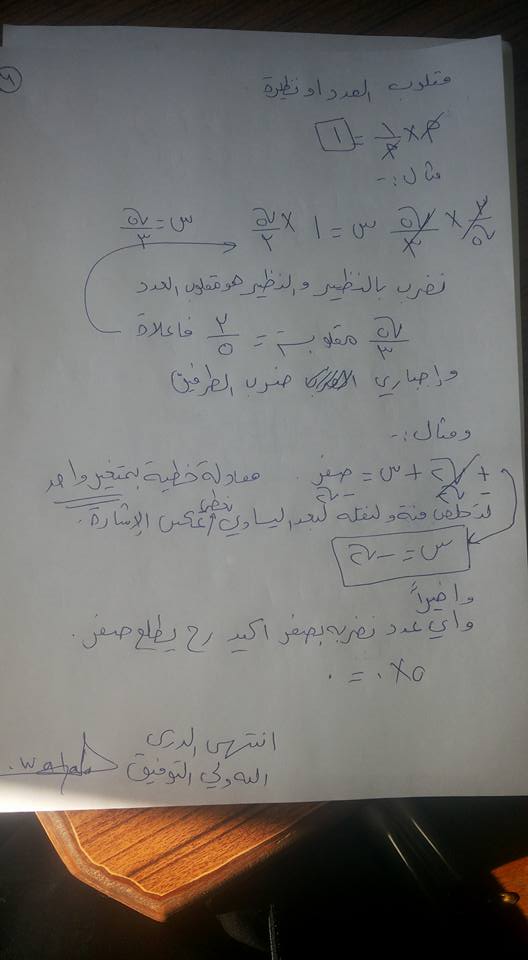 مقلوب العدد او نظيرة
٣ × ١/٣ = ١
مثال :-
٣/٥ × ٥/٣ س = ١ × ٥/٣ س = ٥/٣
نضرب بالنظير والنظير هو مقلوب العدد
٥/٣ مقلوبة = ٣/٥ فاعلاة
واجباري ضرب الطرفين
ومثال :-
+ ٥ + س = صفر معادلة خطية بمتغير واحد
نتخلص منه ولنقله لبعد اليساوي نعطي عكس الإشارة .
س = -٥
واخيراً
واي عدد نضربه بصفر اكيد رح يطلع صفر .
٥ × ٠ = ٠
انتهى الدرس
الله ولي التوفيق